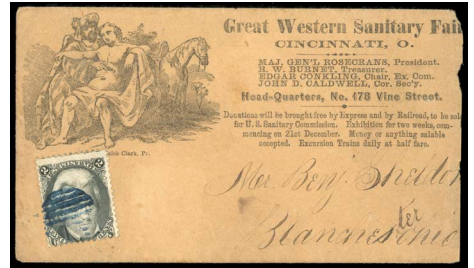 Great Western Sanitary Fair
CINCINNATI, O.
MAJ. GEN'L ROSECRANS, President.
R. W. BURNET, Treasurer.
EDGAR CONKLING, Chair. Ex. Com.
JOHN D. CALDWELL, Cor. Sec'y.
Head-Quarters, No. 178 Vine Street.
Donations will be brought free by Express and by Railroad, to be sold
for U. S. Sanitary Commission. Exhibition for two weeks, com-
mencing on 21st December. Money or anything salable
accepted. Excursion Trains daily at half fare.
Clark, Pr.
2 POSTAGE
Benj. Sheldon
Blanchester